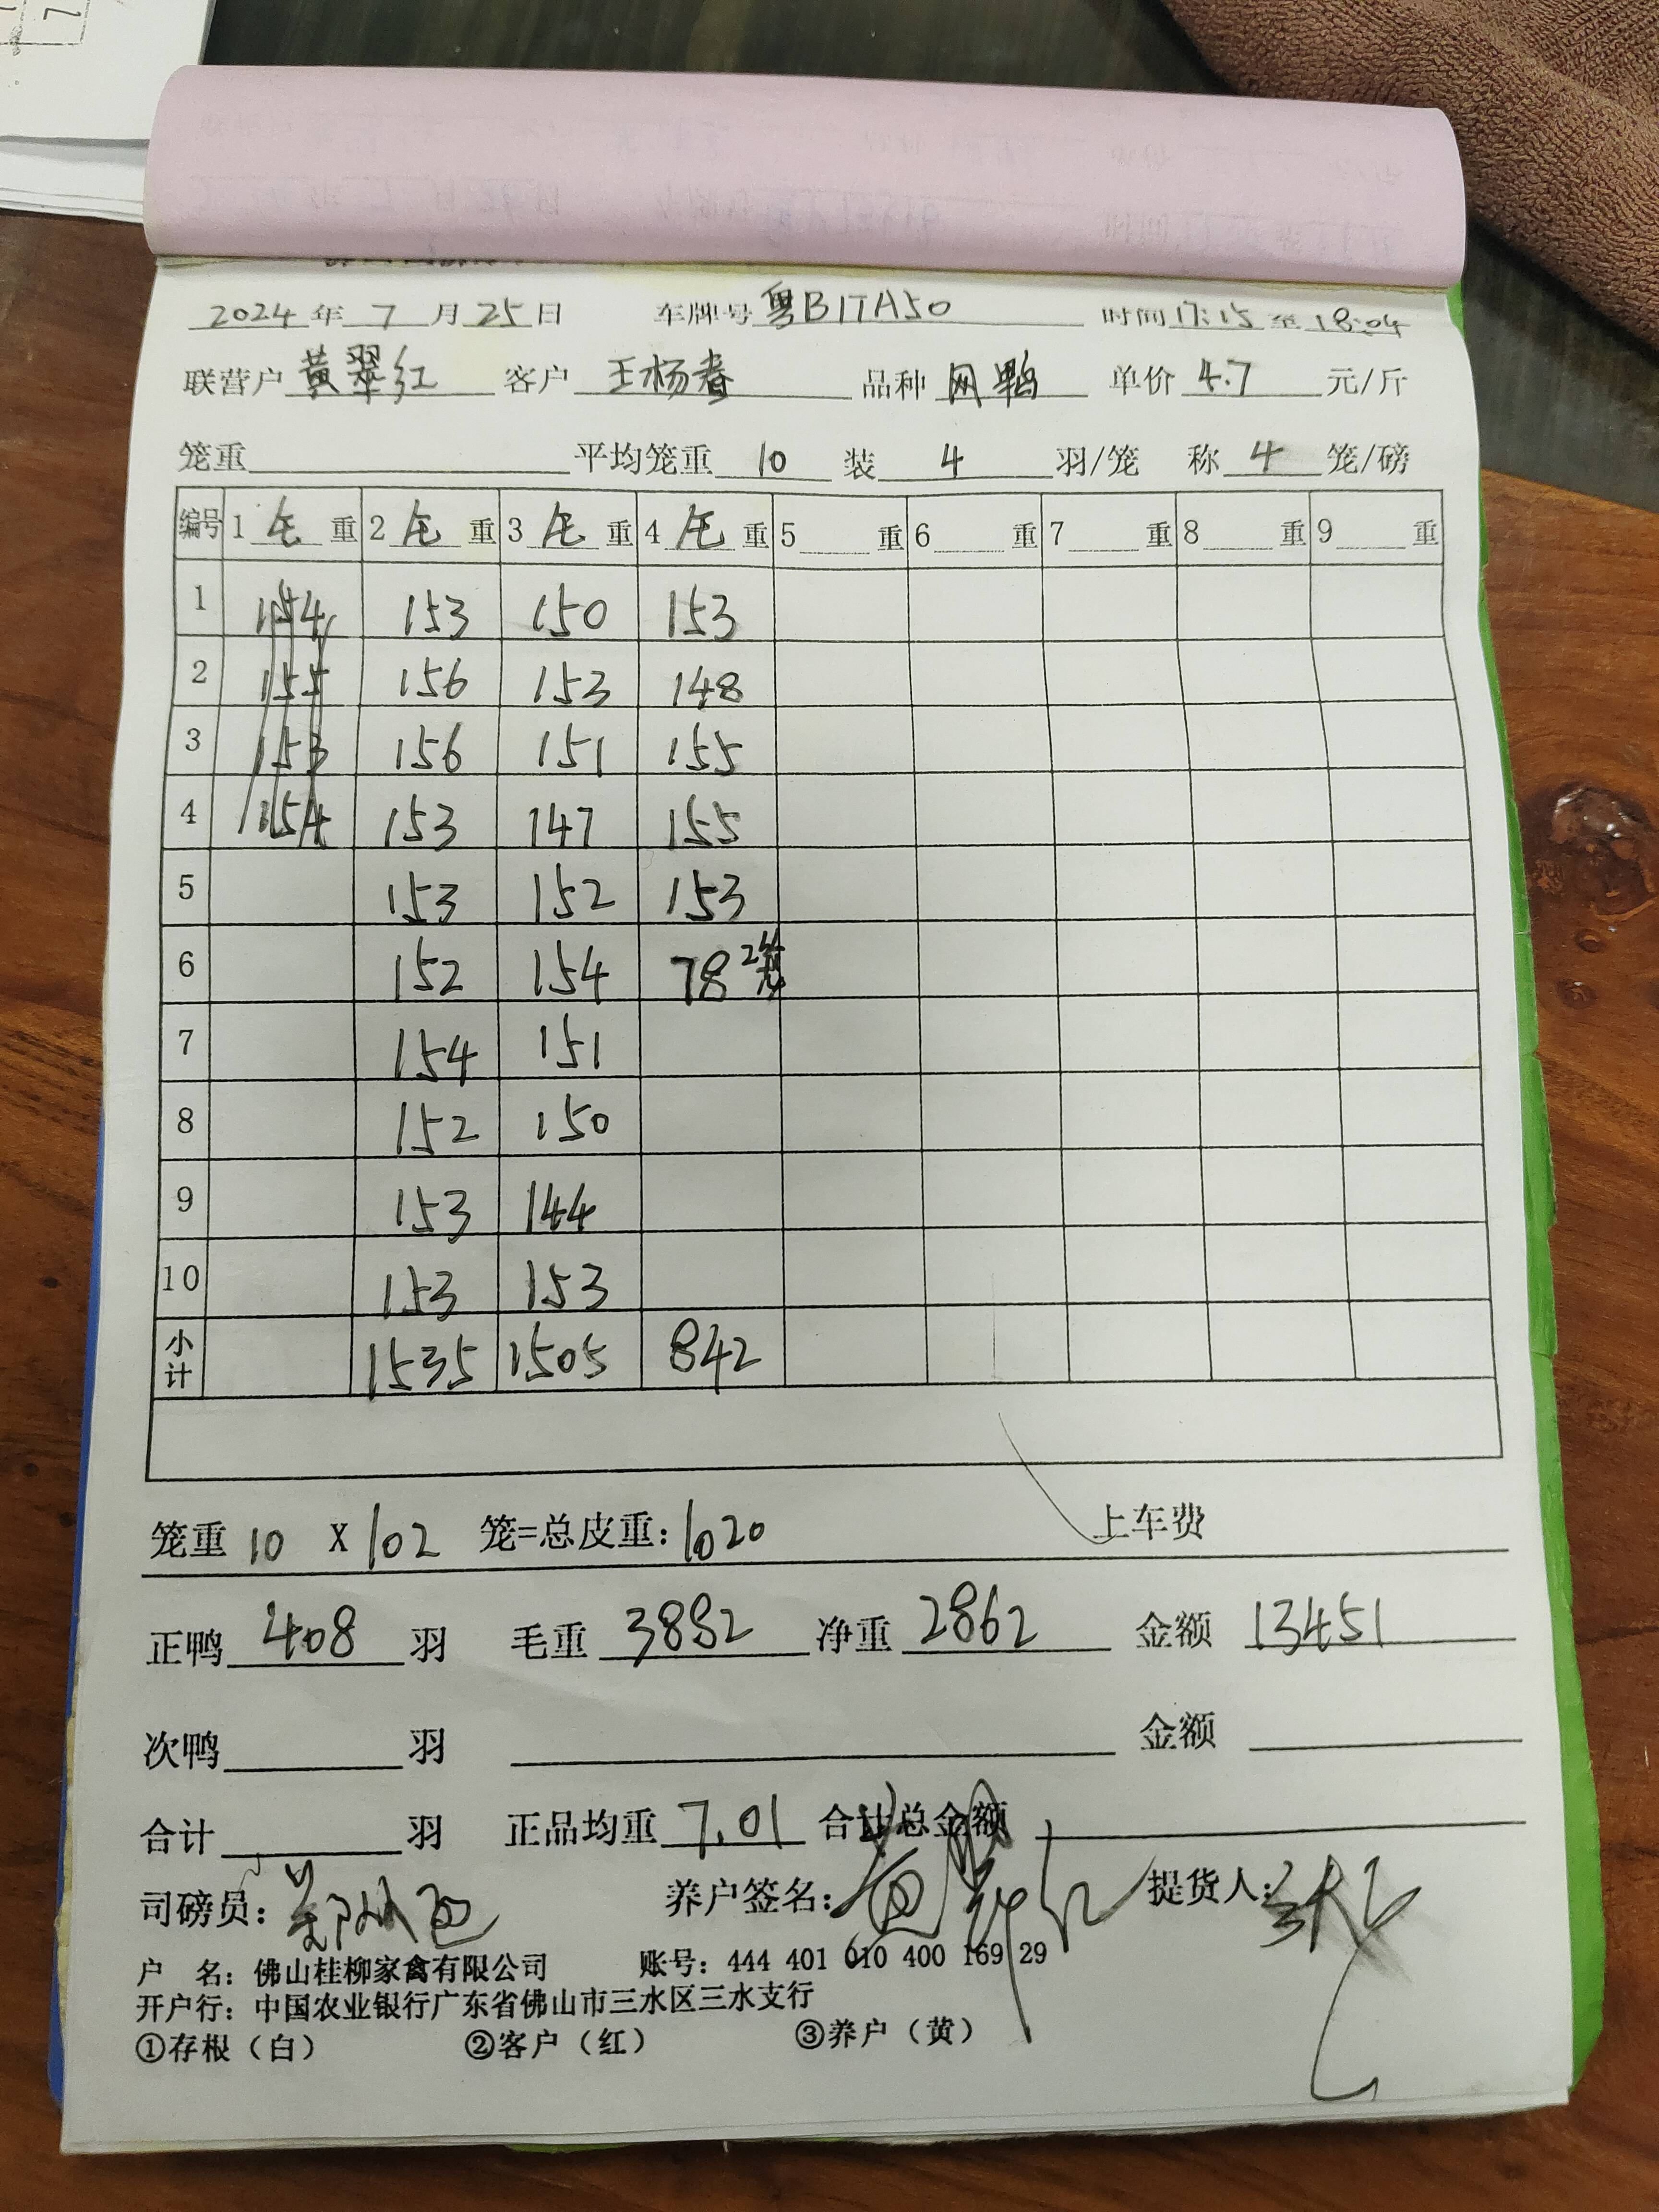 2024年7月25日 车牌号粤B1TA50 时间17:15至18:04
联营户黄翠红 客户王杨春 品种网鸭 单价4.7元/斤
笼重 平均笼重10 装4羽/笼 称4笼/磅
编号 1毛重 2毛重 3毛重 4毛重 5重 6重 7重 8重 9重
1 154 153 150 153
2 155 156 153 148
3 153 156 151 155
4 154 153 147 155
5 153 152 153
6 152 154 78 2笼
7 154 151
8 152 150
9 153 144
10 153 153
小计 1535 1505 842
笼重10X102笼=总皮重:1020 上车费
正鸭408羽 毛重3882 净重2862 金额13451
次鸭 羽 金额
合计 羽 正品均重7.01 合计总金额
司磅员: 养户签名: 提货人:
户 名: 佛山桂柳家禽有限公司 账号: 444 401 010 400 169 29
开户行: 中国农业银行广东省佛山市三水区三水支行
①存根（白） ②客户（红） ③养户（黄）